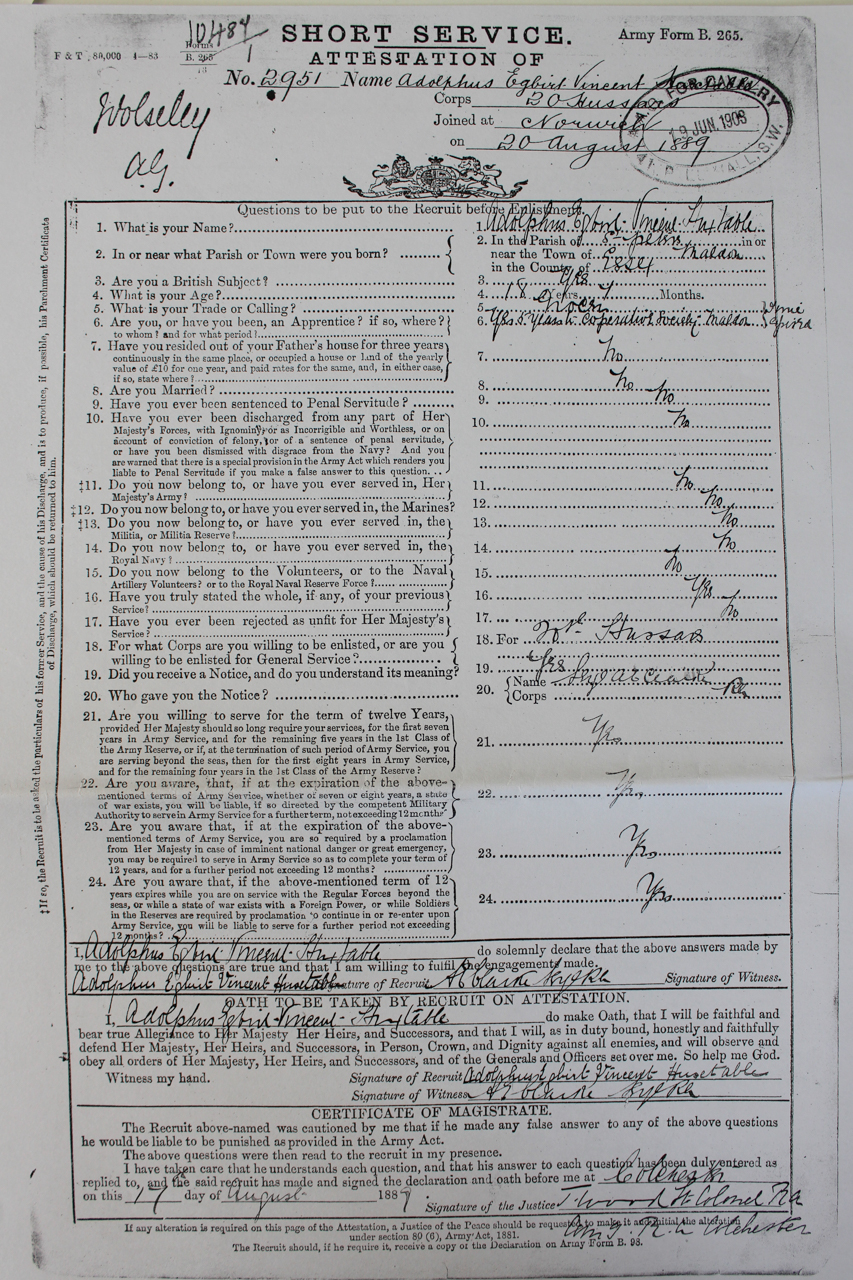 10484/1
SHORT SERVICE.
Army Form B. 265.
F & T 80,000 4—83
Forms
B. 265
ATTESTATION OF
No. 2951 Name Adolphus Egbirt Vincent
Corps 20 Hussars
Wolseley
Joined at Norwich
19 JUN. 1903
on 20 August 1889
A.G.
Questions to be put to the Recruit before Enlistment.
1. What is your Name? 1. Adolphus Egbirt Vincent Huxtable
2. In or near what Parish or Town were you born? 2. In the Parish of St in or
near the Town of Maldon
in the County of Essex
3. Are you a British Subject? 3. Yes
4. What is your Age? 4. 18 Years 7 Months.
5. What is your Trade or Calling? 5. Grocer
6. Are you, or have you been, an Apprentice? if so, where? 6. Yes 5 Years Cooperative Society Maldon } Time Expired
to whom? and for what period?
7. Have you resided out of your Father's house for three years 7. No
continuously in the same place, or occupied a house or land of the yearly
value of £10 for one year, and paid rates for the same, and, in either case,
if so, state where?
8. Are you Married? 8. No
9. Have you ever been sentenced to Penal Servitude? 9. No
10. Have you ever been discharged from any part of Her 10. No
Majesty's Forces, with Ignominy, or as Incorrigible and Worthless, or on
account of conviction of felony, or of a sentence of penal servitude,
or have you been dismissed with disgrace from the Navy? And you
are warned that there is a special provision in the Army Act which renders you
liable to Penal Servitude if you make a false answer to this question.
‡11. Do you now belong to, or have you ever served in, Her 11. No
Majesty's Army?
‡12. Do you now belong to, or have you ever served in, the Marines? 12. No
‡13. Do you now belong to, or have you ever served in, the 13. No
Militia, or Militia Reserve?
14. Do you now belong to, or have you ever served in, the 14. No
Royal Navy?
15. Do you now belong to the Volunteers, or to the Naval 15. No
Artillery Volunteers? or to the Royal Naval Reserve Force?
16. Have you truly stated the whole, if any, of your previous 16. Yes
Service?
17. Have you ever been rejected as unfit for Her Majesty's 17. No
Service?
18. For what Corps are you willing to be enlisted, or are you 18. For 20th Hussars
willing to be enlisted for General Service?
19. Did you receive a Notice, and do you understand its meaning? 19. Yes
20. Who gave you the Notice? 20. { Name
Corps
21. Are you willing to serve for the term of twelve Years, 21. Yes
provided Her Majesty should so long require your services, for the first seven
years in Army Service, and for the remaining five years in the 1st Class of
the Army Reserve, or if, at the termination of such period of Army Service, you
are serving beyond the seas, then for the first eight years in Army Service,
and for the remaining four years in the 1st Class of the Army Reserve?
22. Are you aware, that, if at the expiration of the above- 22. Yes
mentioned terms of Army Service, whether of seven or eight years, a state
of war exists, you will be liable, if so directed by the competent Military
Authority to serve in Army Service for a further term, not exceeding 12 months?
23. Are you aware that, if at the expiration of the above- 23. Yes
mentioned terms of Army Service, you are so required by a proclamation
from Her Majesty in case of imminent national danger or great emergency,
you may be required to serve in Army Service so as to complete your term of
12 years, and for a further period not exceeding 12 months?
24. Are you aware that, if the above-mentioned term of 12 24. Yes
years expires while you are on service with the Regular Forces beyond the
seas, or while a state of war exists with a Foreign Power, or while Soldiers
in the Reserves are required by proclamation to continue in or re-enter upon
Army Service, you will be liable to serve for a further period not exceeding
12 months?
‡ If so, the Recruit is to be asked the particulars of his former Service, and the cause of his Discharge, and is to produce, if possible, his Parchment Certificate
of Discharge, which should be returned to him.
I, Adolphus Egbirt Vincent Huxtable do solemnly declare that the above answers made by
me to the above questions are true and that I am willing to fulfil the engagement made.
Adolphus Egbirt Vincent Huxetable Signature of Recruit Signature of Witness.
OATH TO BE TAKEN BY RECRUIT ON ATTESTATION.
I, Adolphus Egbirt Vincent Huxtable do make Oath, that I will be faithful and
bear true Allegiance to Her Majesty Her Heirs, and Successors, and that I will, as in duty bound, honestly and faithfully
defend Her Majesty, Her Heirs, and Successors, in Person, Crown, and Dignity against all enemies, and will observe and
obey all orders of Her Majesty, Her Heirs, and Successors, and of the Generals and Officers set over me. So help me God.
Witness my hand. Signature of Recruit Adolphus Egbirt Vincent Huxetable
Signature of Witness
CERTIFICATE OF MAGISTRATE.
The Recruit above-named was cautioned by me that if he made any false answer to any of the above questions
he would be liable to be punished as provided in the Army Act.
The above questions were then read to the recruit in my presence.
I have taken care that he understands each question, and that his answer to each question has been duly entered as
replied to, and the said recruit has made and signed the declaration and oath before me at Colchester
on this 17 day of August 1889.
Signature of the Justice T Wood Lt Colonel
Colchester
If any alteration is required on this page of the Attestation, a Justice of the Peace should be requested to make it and initial the alteration
under section 80 (6), Army Act, 1881.
The Recruit should, if he require it, receive a copy of the Declaration on Army Form B. 98.